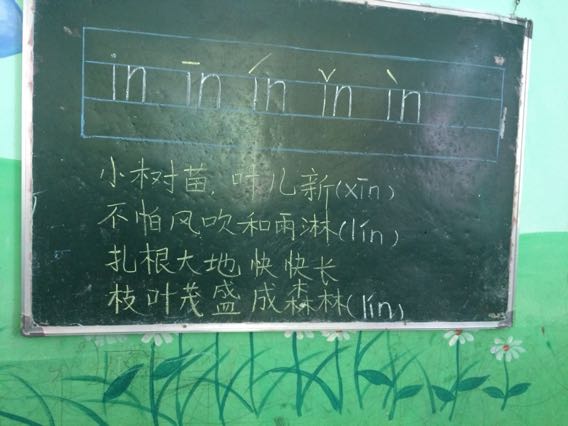 in īn ín ǐn ìn
小树苗,叶儿新(xīn)
不怕风吹和雨淋(lín)
扎根大地快快长
枝叶茂盛成森林(lín)